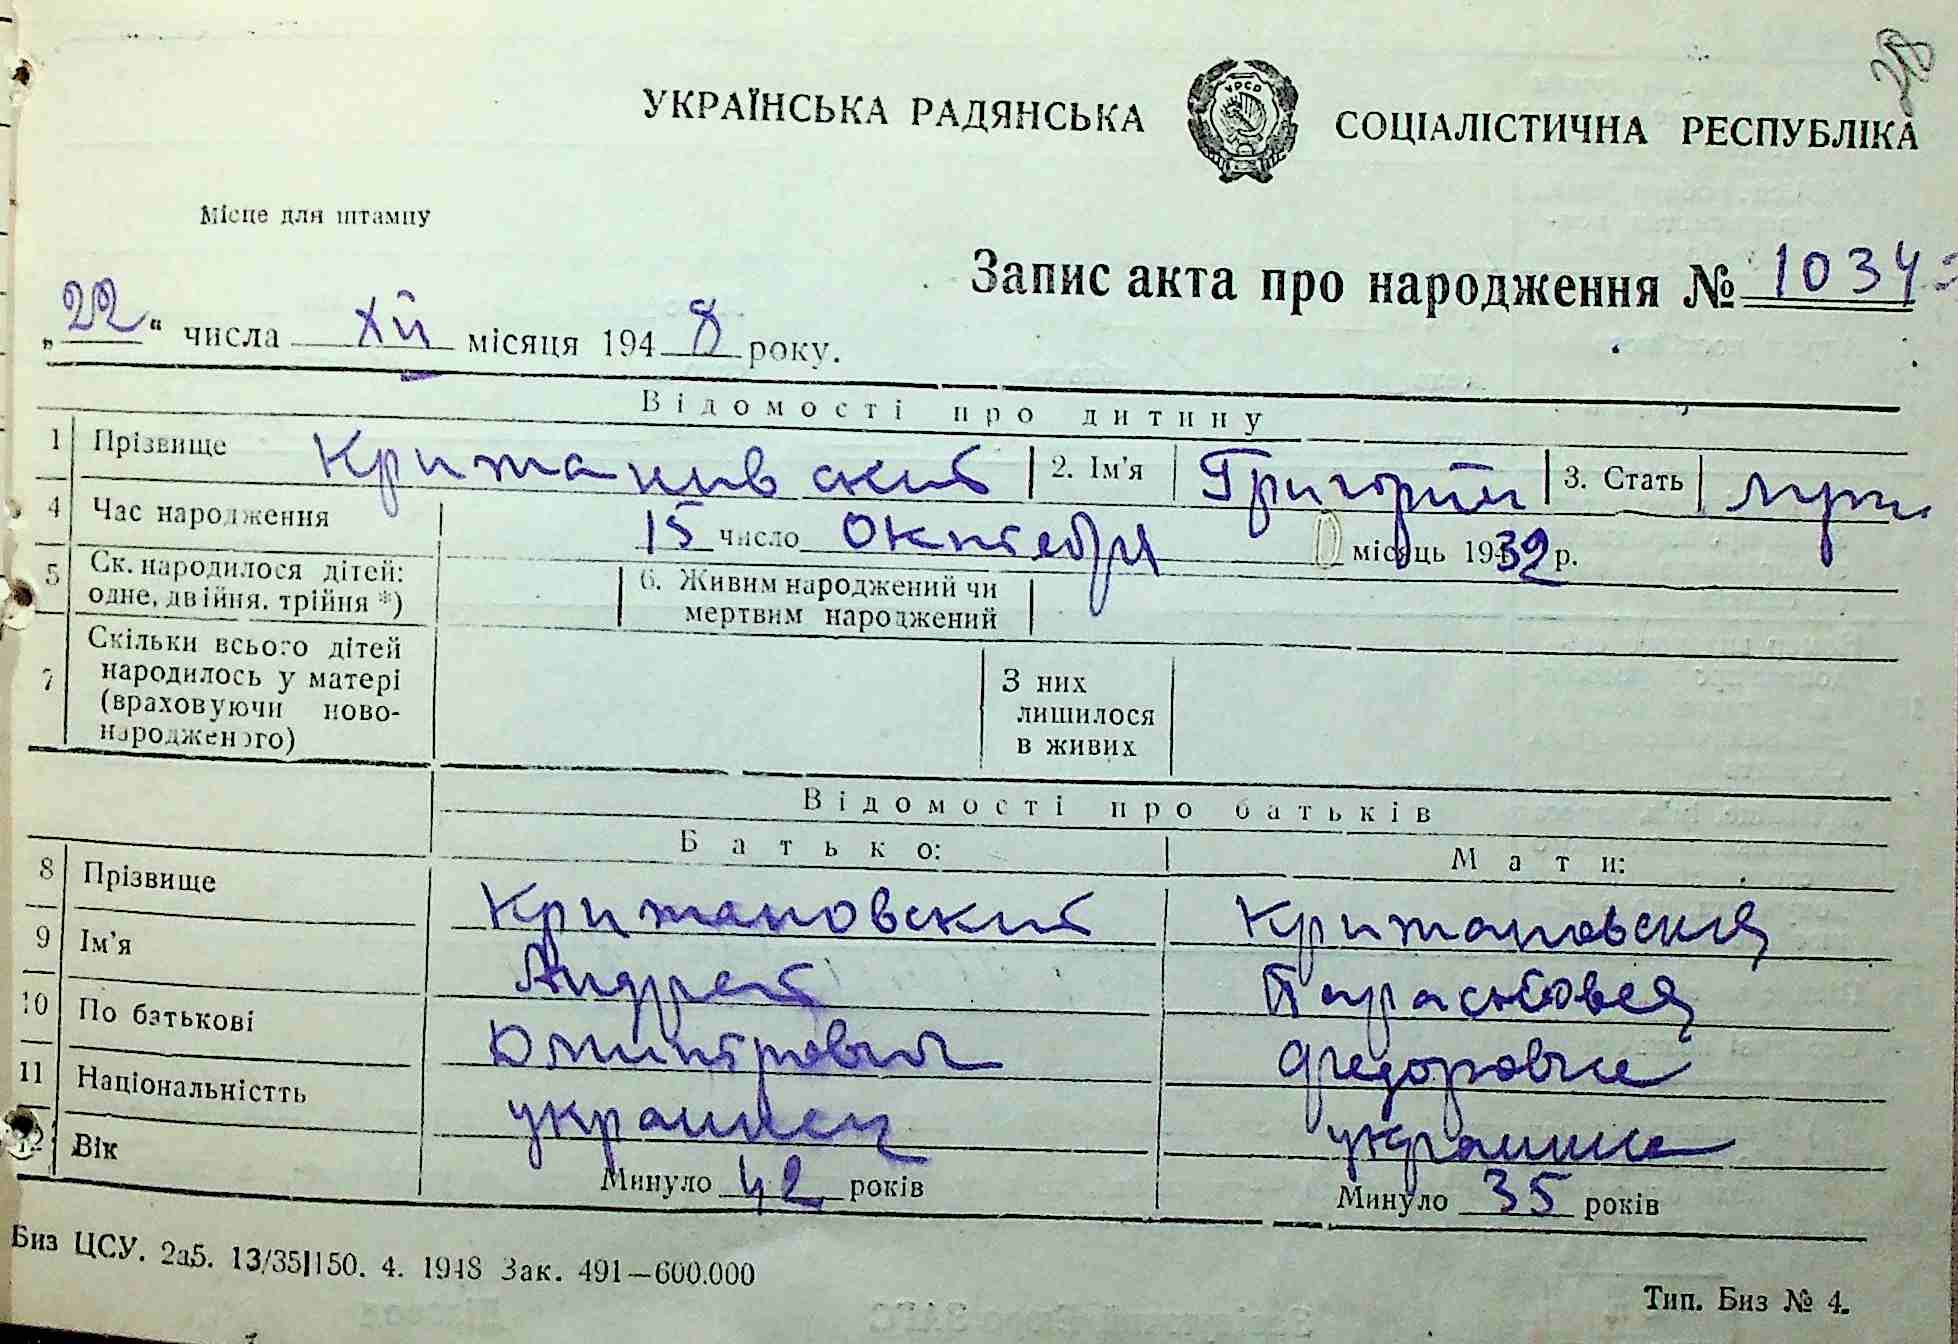 28
УКРАЇНСЬКА РАДЯНСЬКА СОЦІАЛІСТИЧНА РЕСПУБЛІКА
УРСР
Місце для штампу
Запис акта про народження № 1034
„22“ числа XII місяця 1948 року.
Відомості про дитину
1 Прізвище Крижанивский 2. Ім'я Григорий 3. Стать муж
4 Час народження 15 число Октября місяць 1939 р.
5 Ск. народилося дітей: одне, двійня, трійня *) 6. Живим народжений чи мертвим народжений
7 Скільки всього дітей народилось у матері (враховуючи ново-народженого) З них лишилося в живих
Відомості про батьків
Батько: Мати:
8 Прізвище Крижановский Крижановская
9 Ім'я Андрей Парасковея
10 По батькові Дмитрович Федоровна
11 Національністть украинец украинка
12 Вік Минуло 42 років Минуло 35 років
Биз ЦСУ. 2а5. 13/35|150. 4. 1948 Зак. 491—600.000
Тип. Биз № 4.